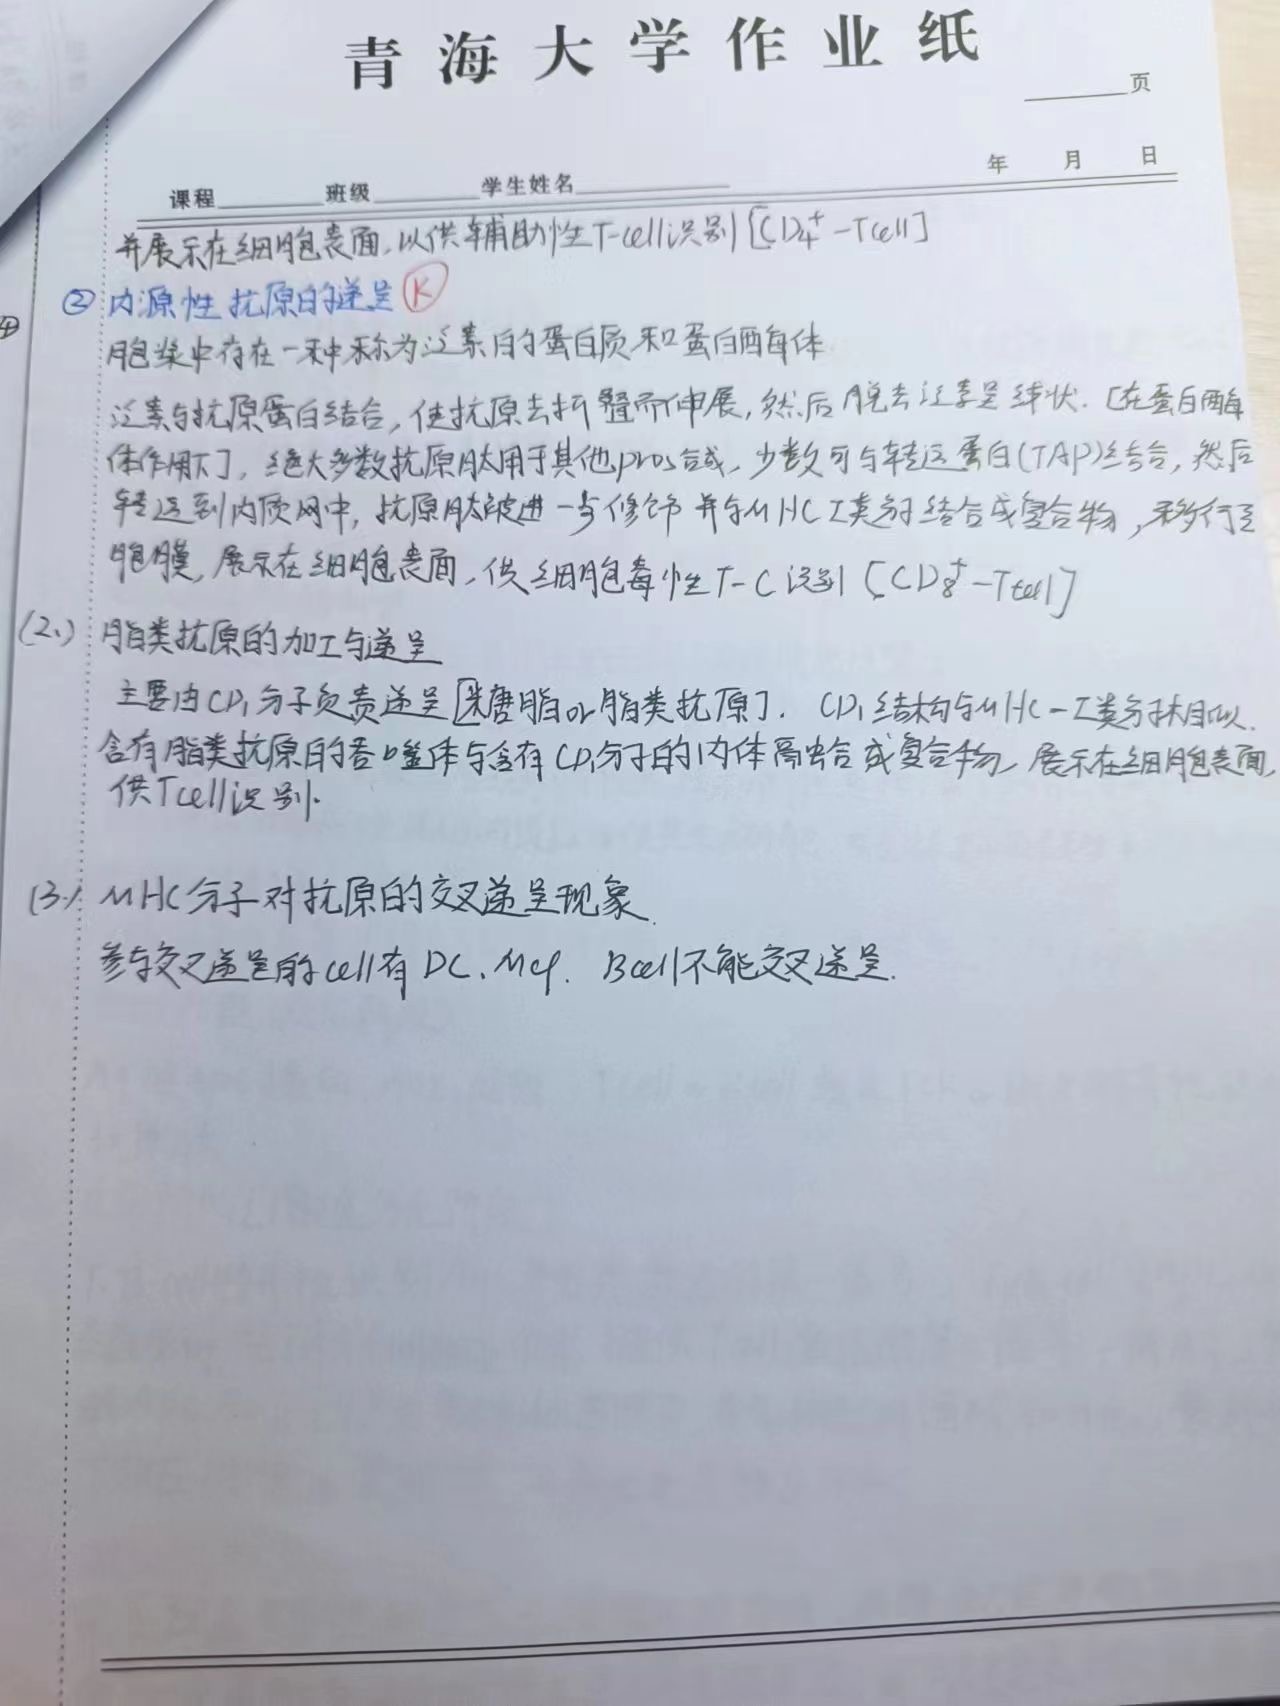 青海大学作业纸
页
年 月 日
课程 班级 学生姓名
并展示在细胞表面,以供辅助性T-cell识别[CD4⁺-Tcell]
② 内源性抗原的递呈 K
胞浆中存在一种称为泛素的蛋白质和蛋白酶体
泛素与抗原蛋白结合,使抗原去折叠而伸展,然后脱去泛素呈线状.[在蛋白酶
体作用下],绝大多数抗原肽用于其他pros合成,少数可与转运蛋白(TAP)结合,然后
转运到内质网中,抗原肽被进一步修饰并与MHC I类分子结合成复合物,移行至
胞膜,展示在细胞表面,供细胞毒性T-C识别[CD8⁺-Tcell]
(2.) 脂类抗原的加工与递呈
主要由CD1分子负责递呈[糖脂or脂类抗原]. CD1结构与MHC-I类分子相似.
含有脂类抗原的吞噬体与含有CD1分子的内体融合成复合物,展示在细胞表面,
供Tcell识别.
(3.) MHC分子对抗原的交叉递呈现象.
参与交叉递呈的cell有DC、Mφ. Bcell不能交叉递呈.